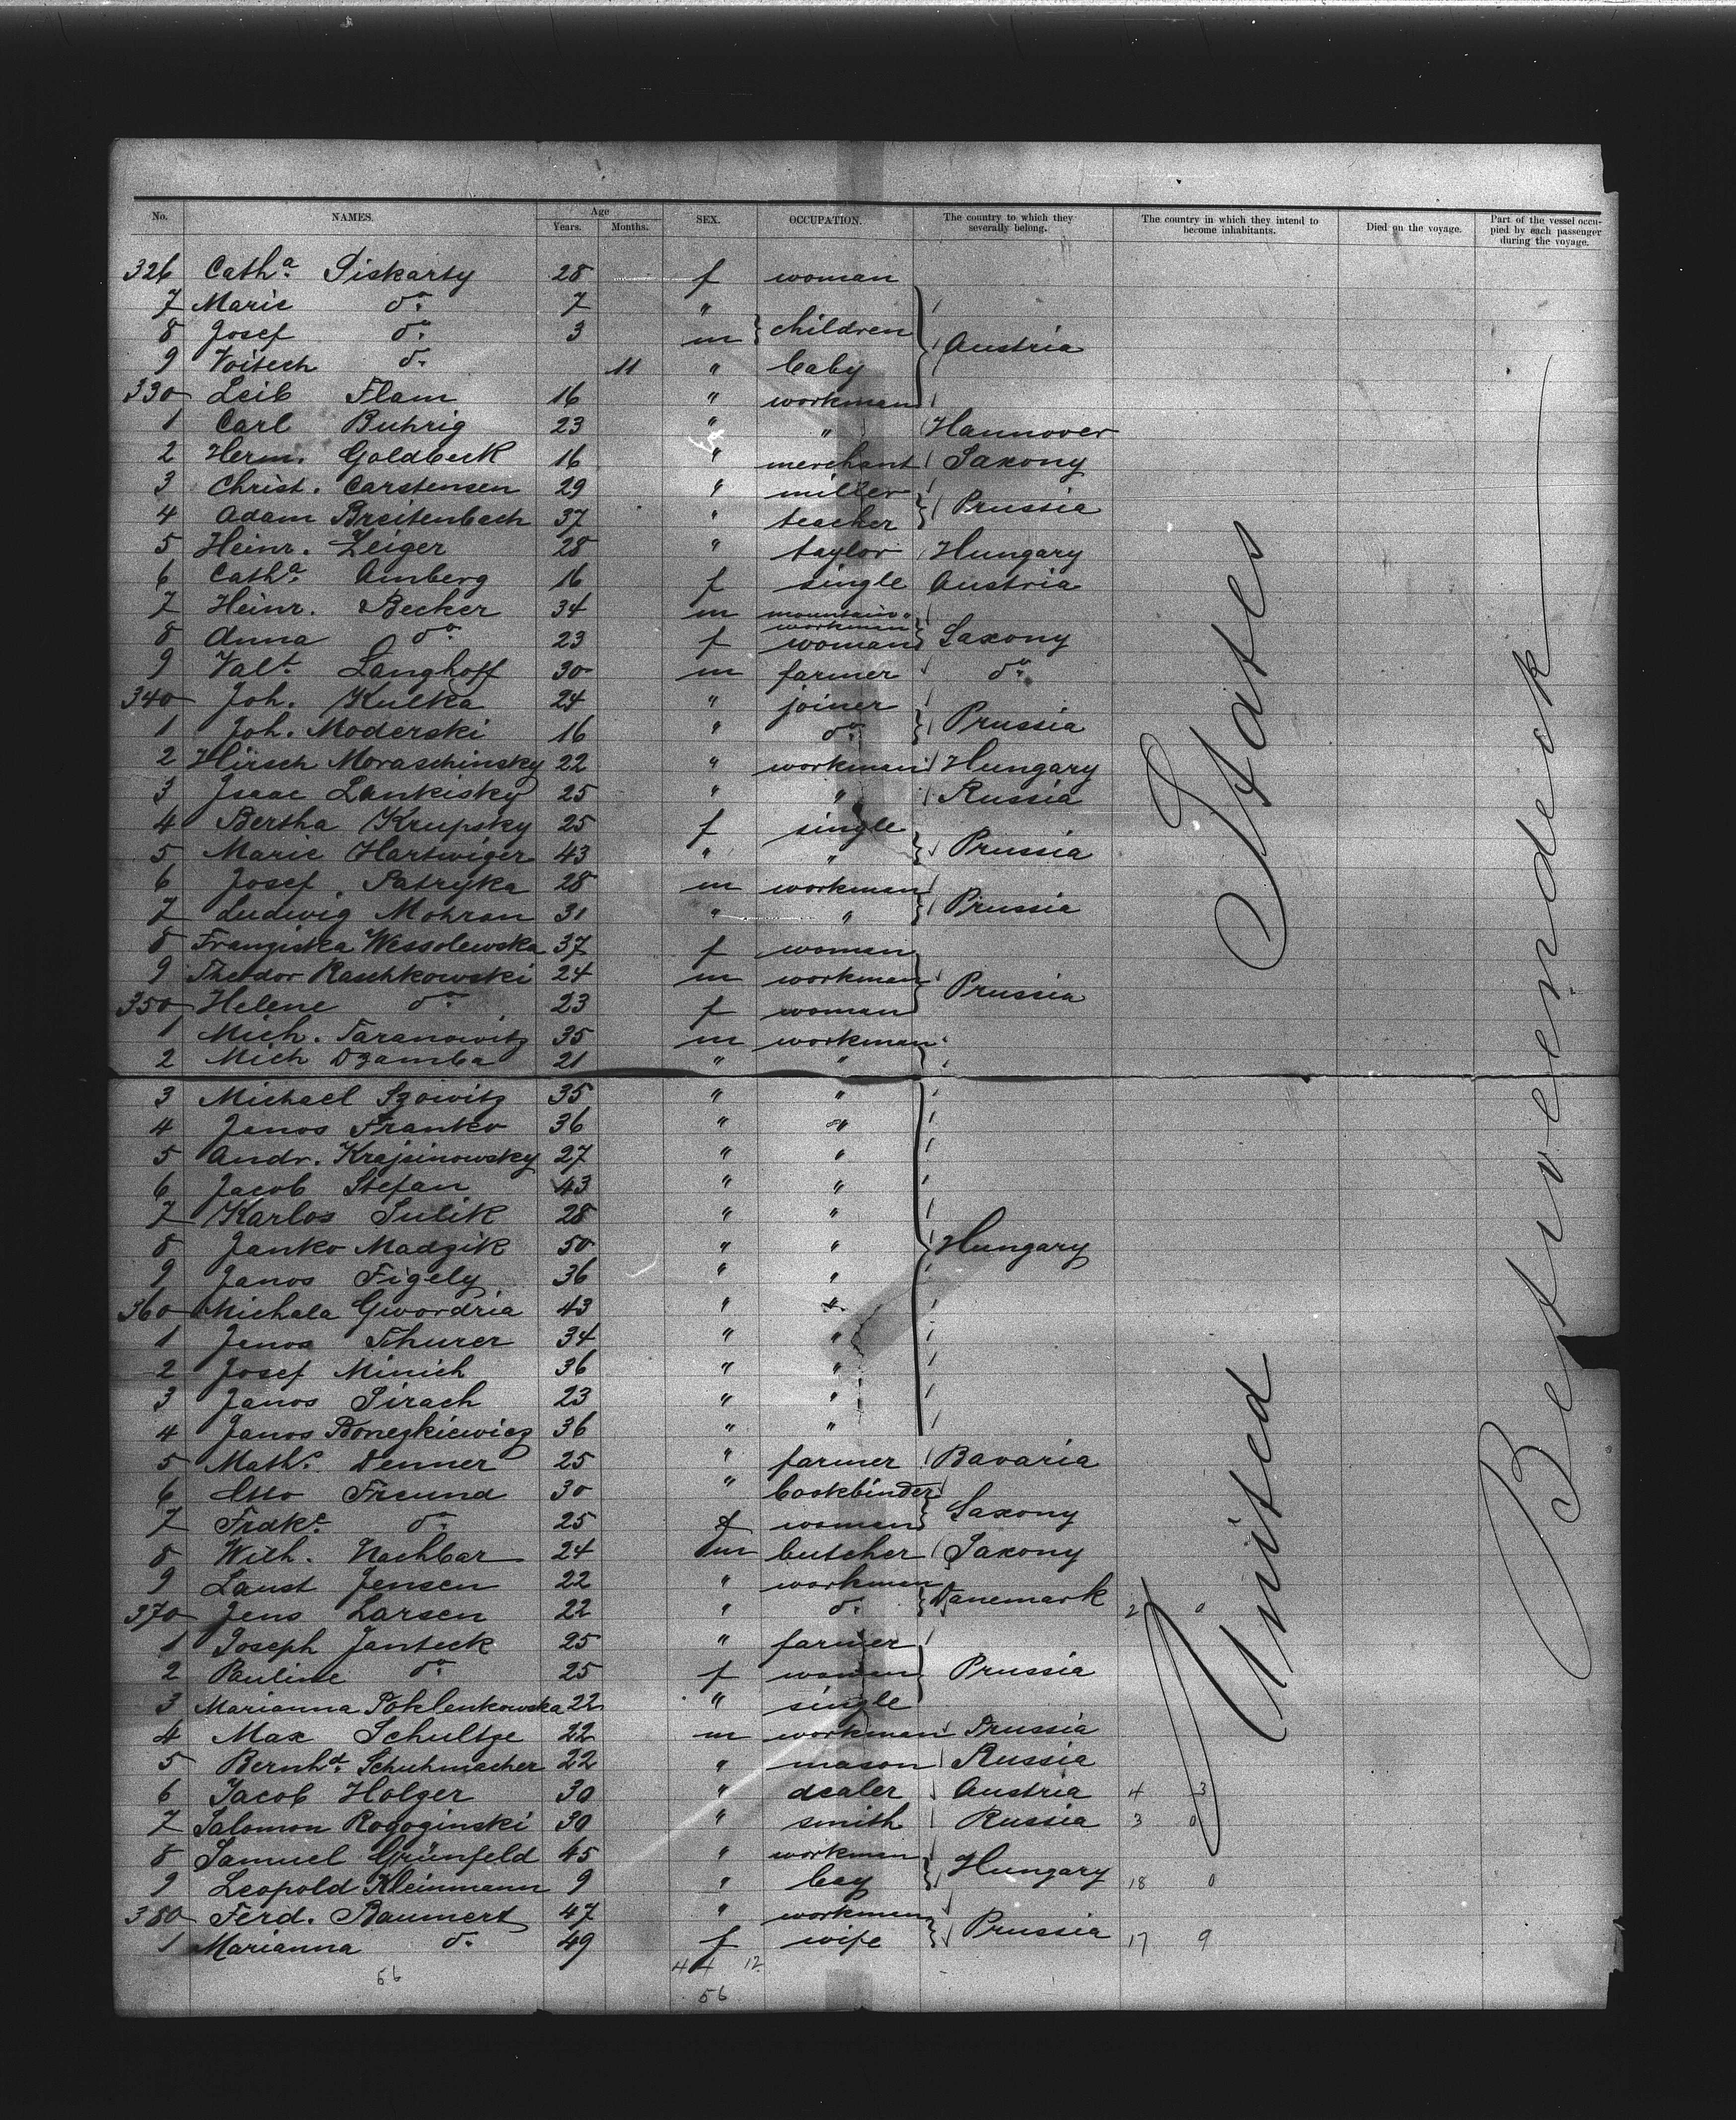 No. NAMES. Age Years. Months. SEX. OCCUPATION. The country to which they severally belong. The country in which they intend to become inhabitants. Died on the voyage. Part of the vessel occupied by each passenger during the voyage.
326 Cath.a Siskarty 28 f woman
7 Marie do. 7 "
8 Josef do. 3 m children Austria
9 Voitech do. 11 " baby
330 Leib Flam 16 " workman
1 Carl Buhrig 23 " " Hannover
2 Herm. Goldbeck 16 " merchant Saxony
3 Christ. Carstensen 29 " miller
4 Adam Breitenbach 37 " teacher Prussia
5 Heinr. Zeiger 28 " taylor Hungary
6 Cath.a Amberg 16 f single Austria
7 Heinr. Becker 34 m mountainworkman
8 Anna do. 23 f woman Saxony
9 Valt. Langhoff 30 m farmer do.
340 Joh. Kulka 24 " joiner
1 Joh. Moderski 16 " do. Prussia
2 Hirsch Moraschinsky 22 " workman Hungary
3 Isaac Lankisky 25 " " Russia
4 Bertha Krupsky 25 f single
5 Marie Hartwiger 43 " " Prussia
6 Josef Patryka 28 m workman
7 Ludwig Mohran 31 " " Prussia
8 Franziska Wessolewska 37 f woman
9 Theodor Raschkowski 24 m workman Prussia
350 Helene do. 23 f woman
1 Mich. Taranowitz 35 m workman
2 Mich Dzamba 21 " "
3 Michael Szowitz 35 " "
4 Janos Franko 36 " "
5 Andr. Krajsinowsky 27 " "
6 Jacob Stefan 43 " "
7 Karlos Sulik 28 " "
8 Janko Madzik 50 " " Hungary
9 Janos Figely 36 " "
360 Michala Gwordria 43 " "
1 Janos Thurer 34 " "
2 Josef Minich 36 " "
3 Janos Sirach 23 " "
4 Janos Bonezkiewicz 36 " "
5 Math.s Denner 25 " farmer Bavaria
6 Otto Freund 30 " bookbinder
7 Fradke. do. 25 f woman Saxony
8 Wilh. Nachbar 24 m butcher Saxony
9 Laust Jensen 22 " workman
370 Jens Larsen 22 " do. Danemark 2 0
1 Joseph Janteck 25 " farmer
2 Pauline do. 25 f woman Prussia
3 Marianna Poklenkowska 22 " single
4 Max Schultze 22 m workman Prussia
5 Bernh.d Schuhmacher 22 " mason Russia
6 Jacob Holger 30 " dealer Austria 4 3
7 Salomon Rogoginski 30 " smith Russia 3 0
8 Samuel Grünfeld 45 " workman
9 Leopold Kleinmann 9 " boy Hungary 18 0
380 Ferd. Baumert 47 " workman
1 Marianna do. 49 f wife Prussia 17 9
56 44 12
56
United States
Betweendeck